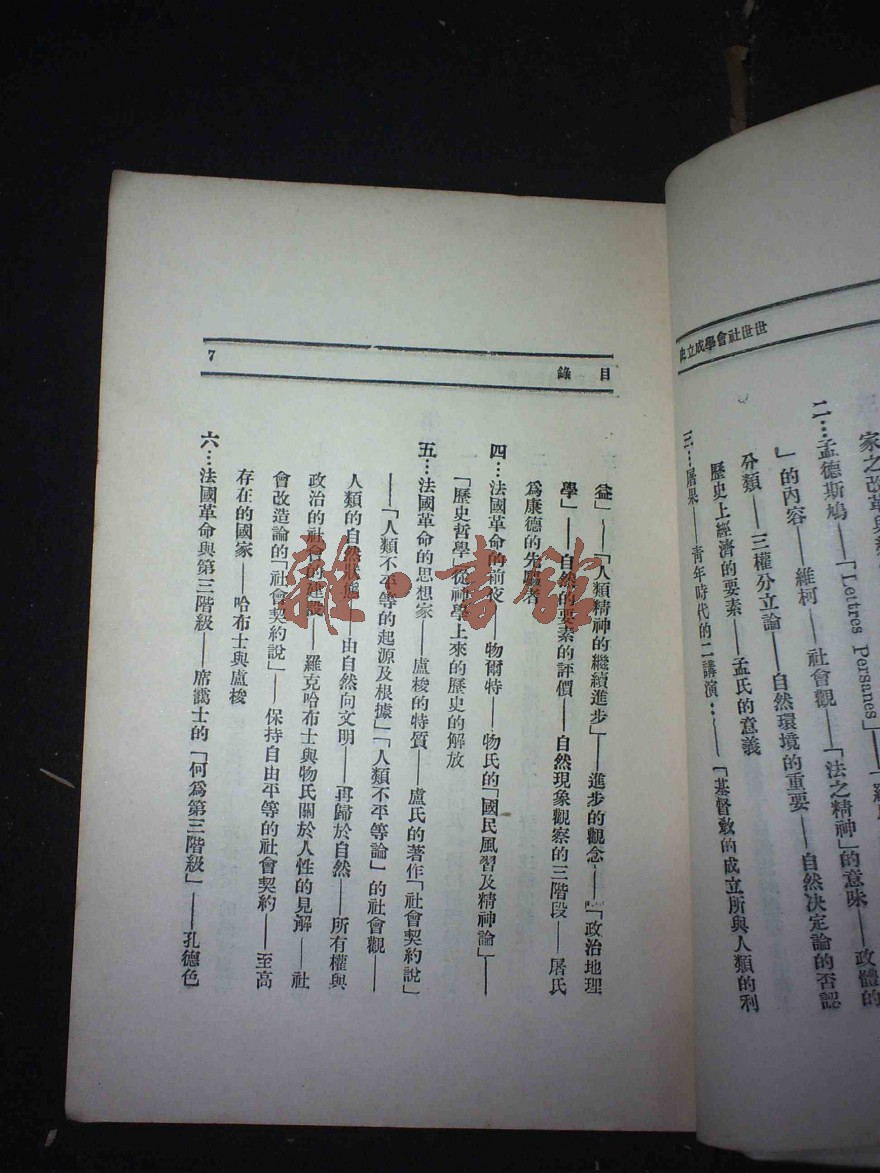 史立成學會社世世
家之改革與
Lettres Persanes」——
二…孟德斯鳩——「
」的內容——維柯——社會觀——「法之精神」的意味——政體的
分類——三權分立論——自然環境的重要——自然決定論的否認
歷史上經濟的要素——孟氏的意義
三…屠果——青年時代的二講演…——「基督敎的成立所與人類的利
目錄
7
益」——「人類精神的繼續進步」——進步的觀念——「政治地理
學」——自然的要素的評價——自然現象觀察的三階段——屠氏
爲康德的先驅者
四…法國革命的前夜——物爾特——物氏的「國民風習及精神論」——
「歷史哲學」從神學上來的歷史的解放
五…法國革命的思想家——盧梭的特質——盧氏的著作「社會契約說」
——「人類不平等的起源及根據」「人類不平等論」的社會觀——
人類的自然狀態——由自然向文明——再歸於自然——所有權與
政治的社會的建設——羅克哈布士與物氏關於人性的見解——社
會改造論的「社會契約說」——保持自由平等的社會契約——至高
存在的國家——哈布士與盧梭
六…法國革命與第三階級——席靄士的「何爲第三階級」——孔德色
雜·書館